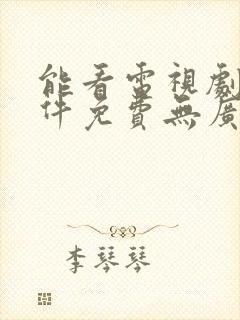 能看雷視劇
件免費無廣
李琴琴